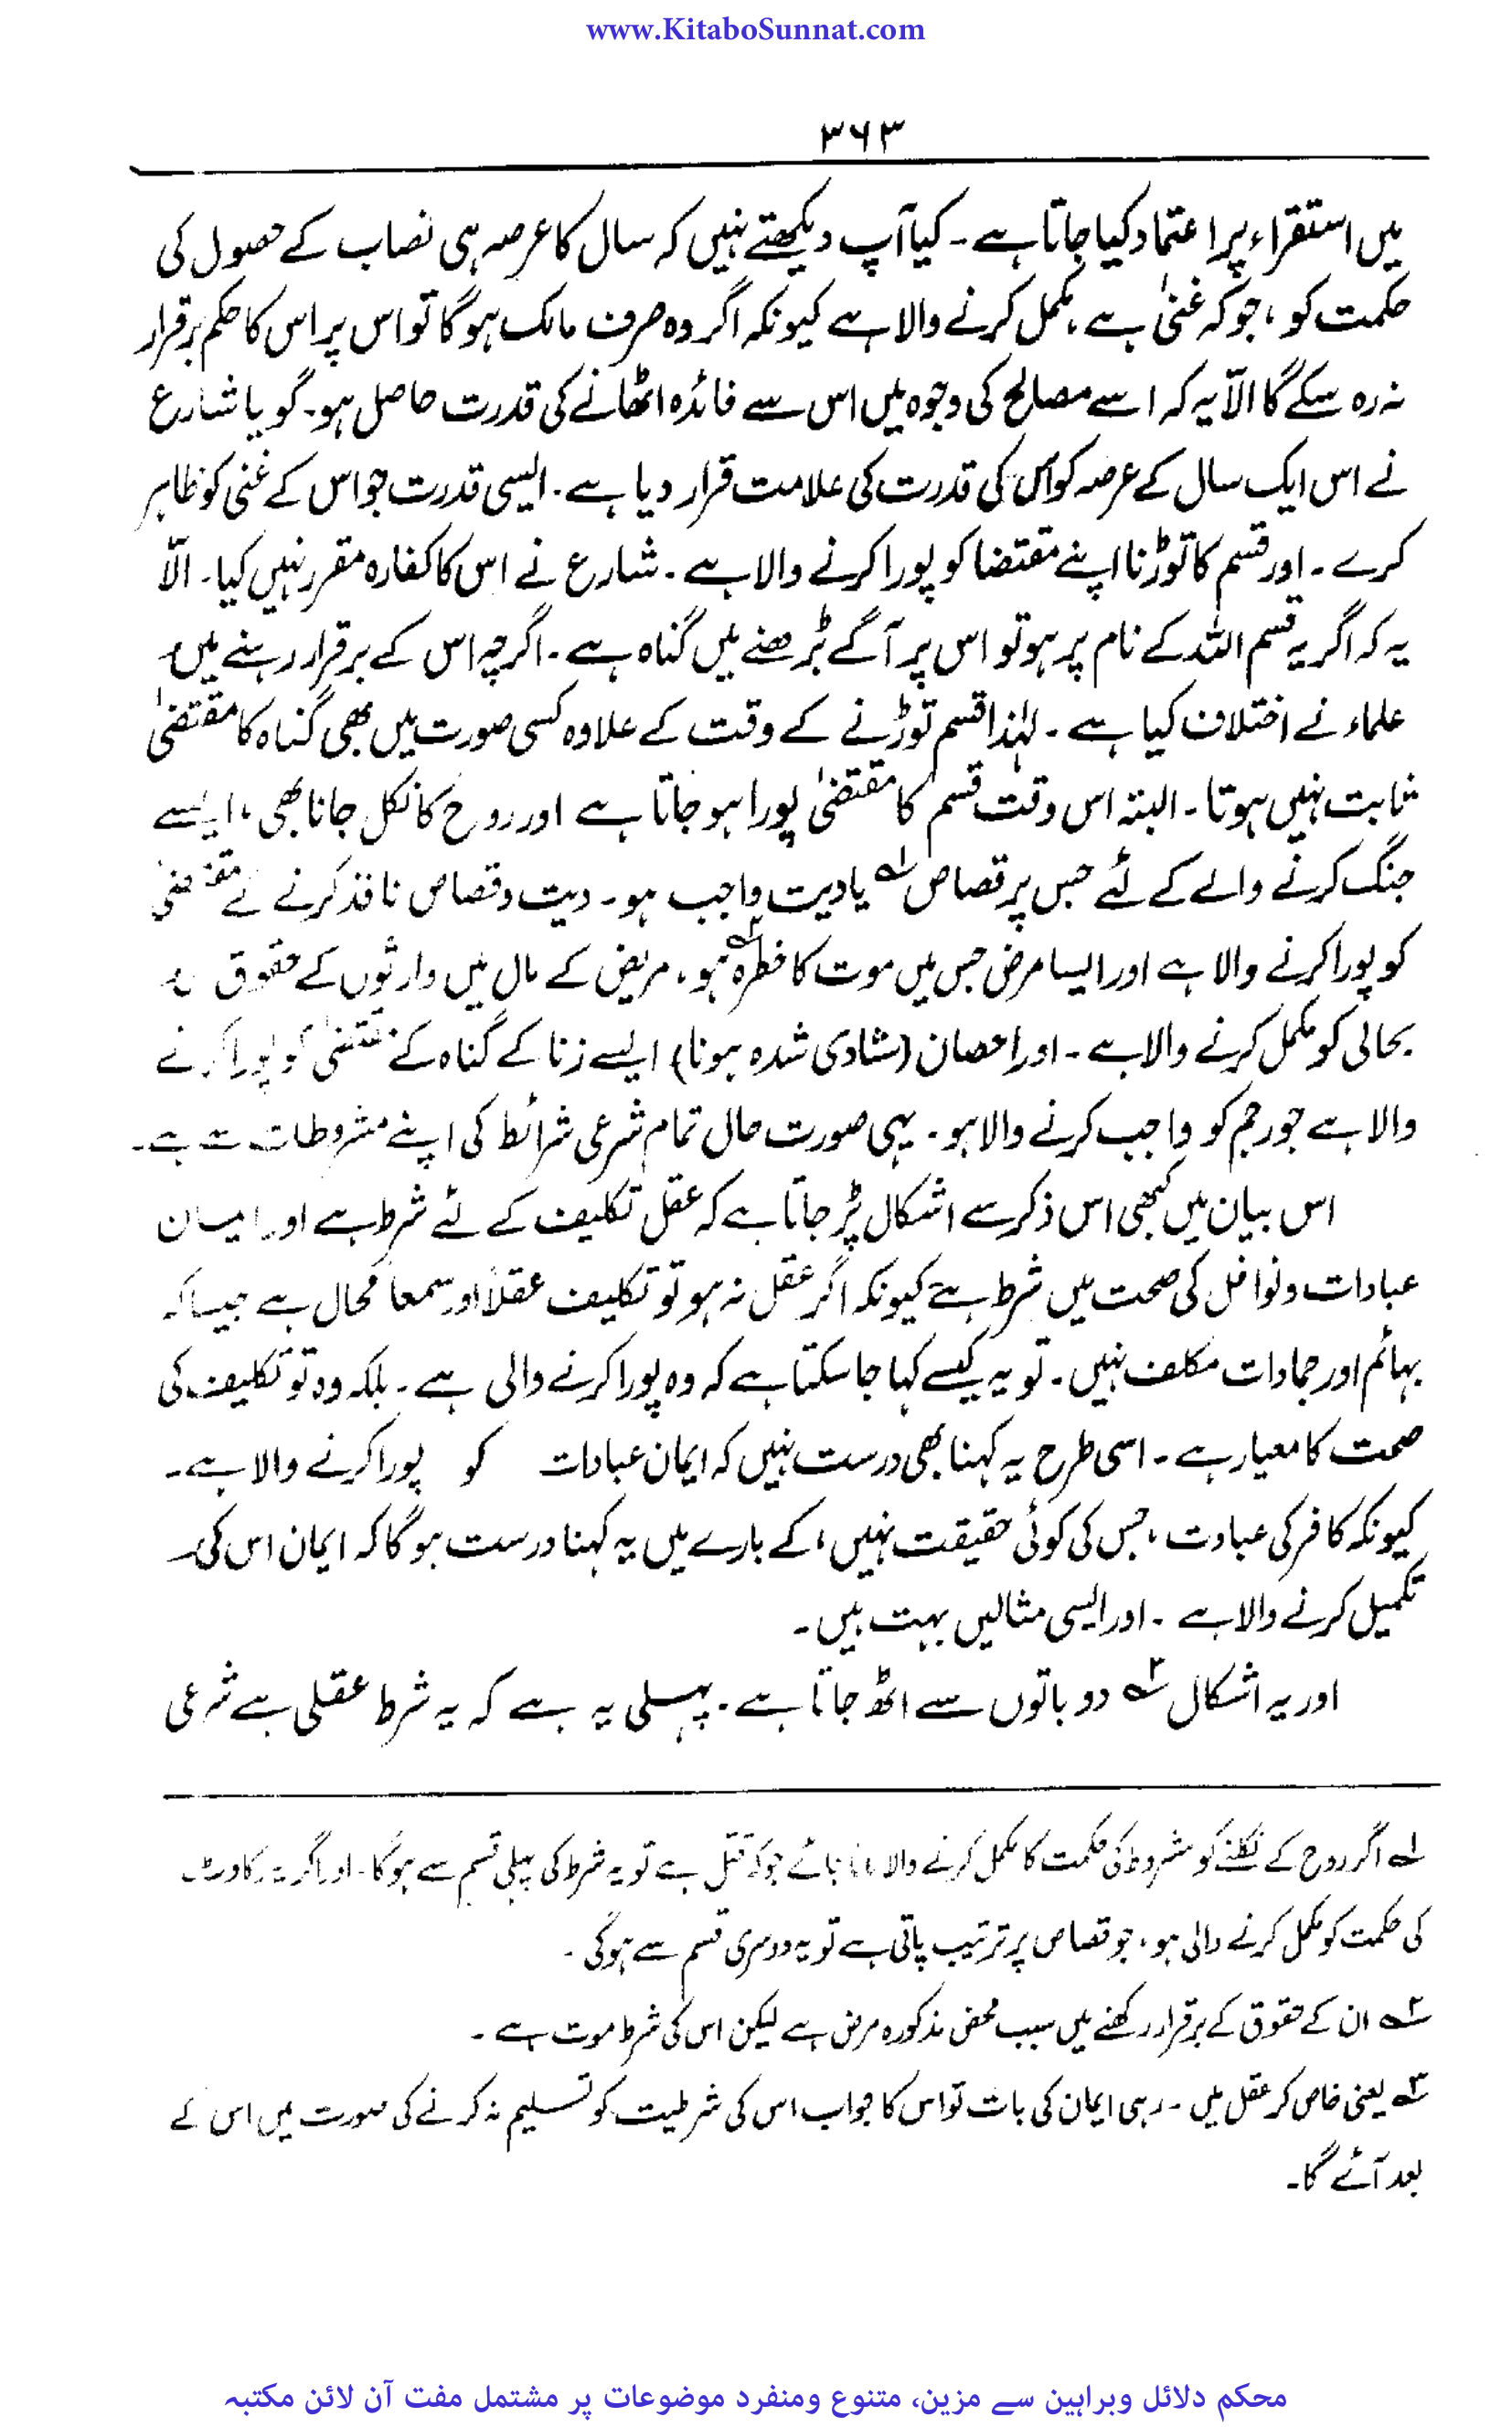 www.KitaboSunnat.com
۳۶۳
میں استقراء پر اعتماد کیا جاتا ہے۔ کیا آپ دیکھتے نہیں کہ سال کا عرصہ ہی نصاب کے حصول کی
حکمت کو، جو کہ غنیٰ ہے، مکمل کرنے والا ہے کیونکہ اگر وہ صرف مالک ہو گا تو اس پر اس کا حکم برقرار
نہ رہ سکے گا الاّ یہ کہ اسے مصالح کی وجوہ میں اس سے فائدہ اٹھانے کی قدرت حاصل ہو۔ گویا شارع
نے اس ایک سال کے عرصہ کو اس کی قدرت کی علامت قرار دیا ہے۔ ایسی قدرت جو اس کے غنی کو ظاہر
کرے۔ اور قسم کا توڑنا اپنے مقتضا کو پورا کرنے والا ہے۔ شارع نے اس کا کفارہ مقرر نہیں کیا۔ الاّ
یہ کہ اگر یہ قسم اللہ کے نام پر ہو تو اس پر آگے بڑھنے میں گناہ ہے۔ اگرچہ اس کے برقرار رہنے میں
علماء نے اختلاف کیا ہے۔ لہٰذا قسم توڑنے کے وقت کے علاوہ کسی صورت میں بھی گناہ کا مقتضیٰ
ثابت نہیں ہوتا۔ البتہ اس وقت قسم کا مقتضیٰ پورا ہو جاتا ہے اور روح کا نکل جانا بھی، ایسے
جنگ کرنے والے کے لئے جس پر قصاص ۱ یا دیت واجب ہو۔ دیت و قصاص نافذ کرنے کے مقتضیٰ
کو پورا کرنے والا ہے اور ایسا مرض جس میں موت کا خطرہ ۲ ہو، مریض کے مال میں وارثوں کے حقوق کی
بحالی کو مکمل کرنے والا ہے۔ اور احصان (شادی شدہ ہونا) ایسے زنا کے گناہ کے مقتضیٰ کو پورا کرنے
والا ہے جو رجم کو واجب کرنے والا ہو۔ یہی صورت حال تمام شرعی شرائط کی اپنے مشروطات سے ہے۔
اس بیان میں کبھی اس ذکر سے اشکال پڑ جاتا ہے کہ عقل تکلیف کے لئے شرط ہے اور ایمان
عبادات و نوافل کی صحت میں شرط ہے کیونکہ اگر عقل نہ ہو تو تکلیف عقلاً اور سمعاً محال ہے جیسا کہ
بہائم اور جمادات مکلف نہیں۔ تو یہ کیسے کہا جا سکتا ہے کہ وہ پورا کرنے والی ہے۔ بلکہ وہ تو تکلیف کی
صحت کا معیار ہے۔ اسی طرح یہ کہنا بھی درست نہیں کہ ایمان عبادات کو پورا کرنے والا ہے۔
کیونکہ کافر کی عبادت، جس کی کوئی حقیقت نہیں، کے بارے میں یہ کہنا درست ہو گا کہ ایمان اس کی
تکمیل کرنے والا ہے۔ اور ایسی مثالیں بہت ہیں۔
اور یہ اشکال ۳ دو باتوں سے اٹھ جاتا ہے۔ پہلی یہ ہے کہ یہ شرط عقلی ہے شرعی
۱ اگر روح کے نکلنے کو مشروط کی حکمت کا مکمل کرنے والا مانا جائے جو کہ قتل ہے تو یہ شرط کی پہلی قسم سے ہو گا۔ اور اگر یہ رکاوٹ
کی حکمت کو مکمل کرنے والی ہو، جو قصاص پر ترتیب پاتی ہے تو یہ دوسری قسم سے ہو گی۔
۲ ان کے حقوق کے برقرار رکھنے میں سبب محض مذکورہ مرض ہے لیکن اس کی شرط موت ہے۔
۳ یعنی خاص کر عقل میں۔ رہی ایمان کی بات تو اس کا جواب اس کی شرطیت کو تسلیم نہ کرنے کی صورت میں اس کے
بعد آئے گا۔
محکم دلائل وبراہین سے مزین، متنوع ومنفرد موضوعات پر مشتمل مفت آن لائن مکتبہ